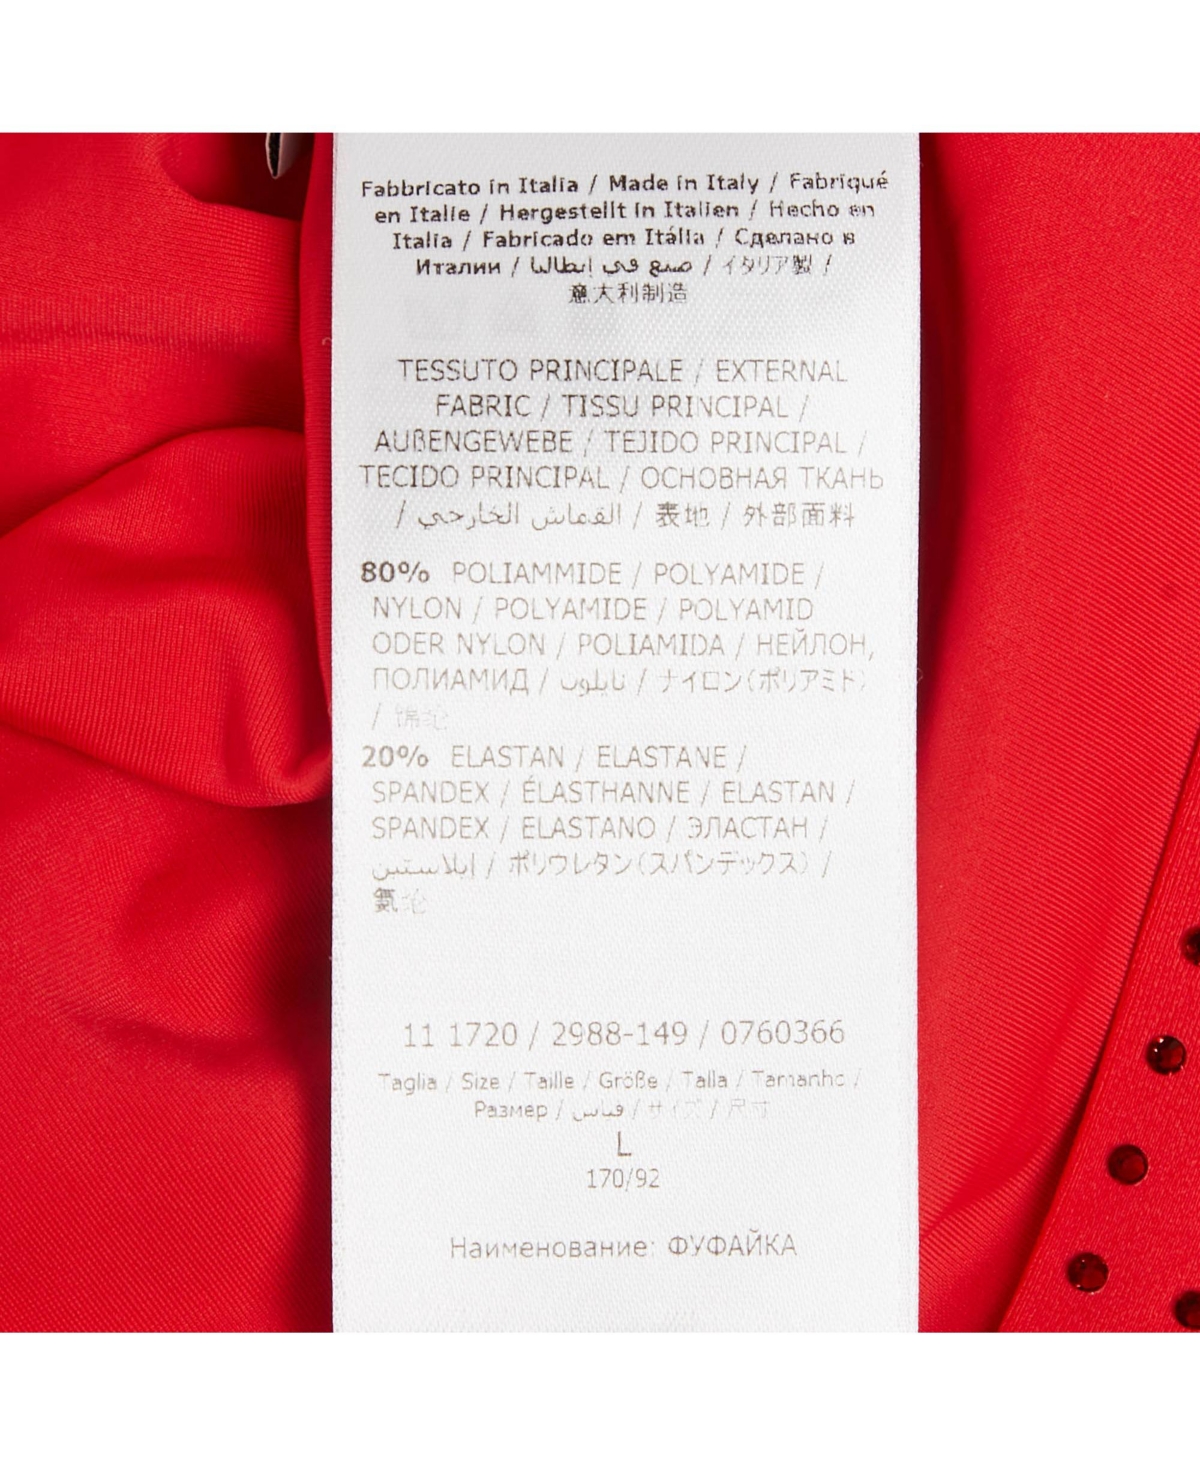 Fabbricato in Italia / Made in Italy / Fabriqué
en Italie / Hergestellt in Italien / Hecho en
Italia / Fabricado em Itália / Сделано в
Италии / صنع في إيطاليا / イタリア製 /
意大利制造
TESSUTO PRINCIPALE / EXTERNAL
FABRIC / TISSU PRINCIPAL /
AUßENGEWEBE / TEJIDO PRINCIPAL /
TECIDO PRINCIPAL / ОСНОВНАЯ ТКАНЬ
/ القماش الخارجي / 表地 / 外部面料
80% POLIAMMIDE / POLYAMIDE /
NYLON / POLYAMIDE / POLYAMID
ODER NYLON / POLIAMIDA / НЕЙЛОН,
ПОЛИАМИД / نايلون / ナイロン(ポリアミド)
/ 锦纶
20% ELASTAN / ELASTANE /
SPANDEX / ÉLASTHANNE / ELASTAN /
SPANDEX / ELASTANO / ЭЛАСТАН /
إيلاستين / ポリウレタン(スパンデックス) /
氨纶
11 1720 / 2988-149 / 0760366
Taglia / Size / Taille / Größe / Talla / Tamanho /
Размер / قياس / サイズ / 尺寸
L
170/92
Наименование: ФУФАЙКА